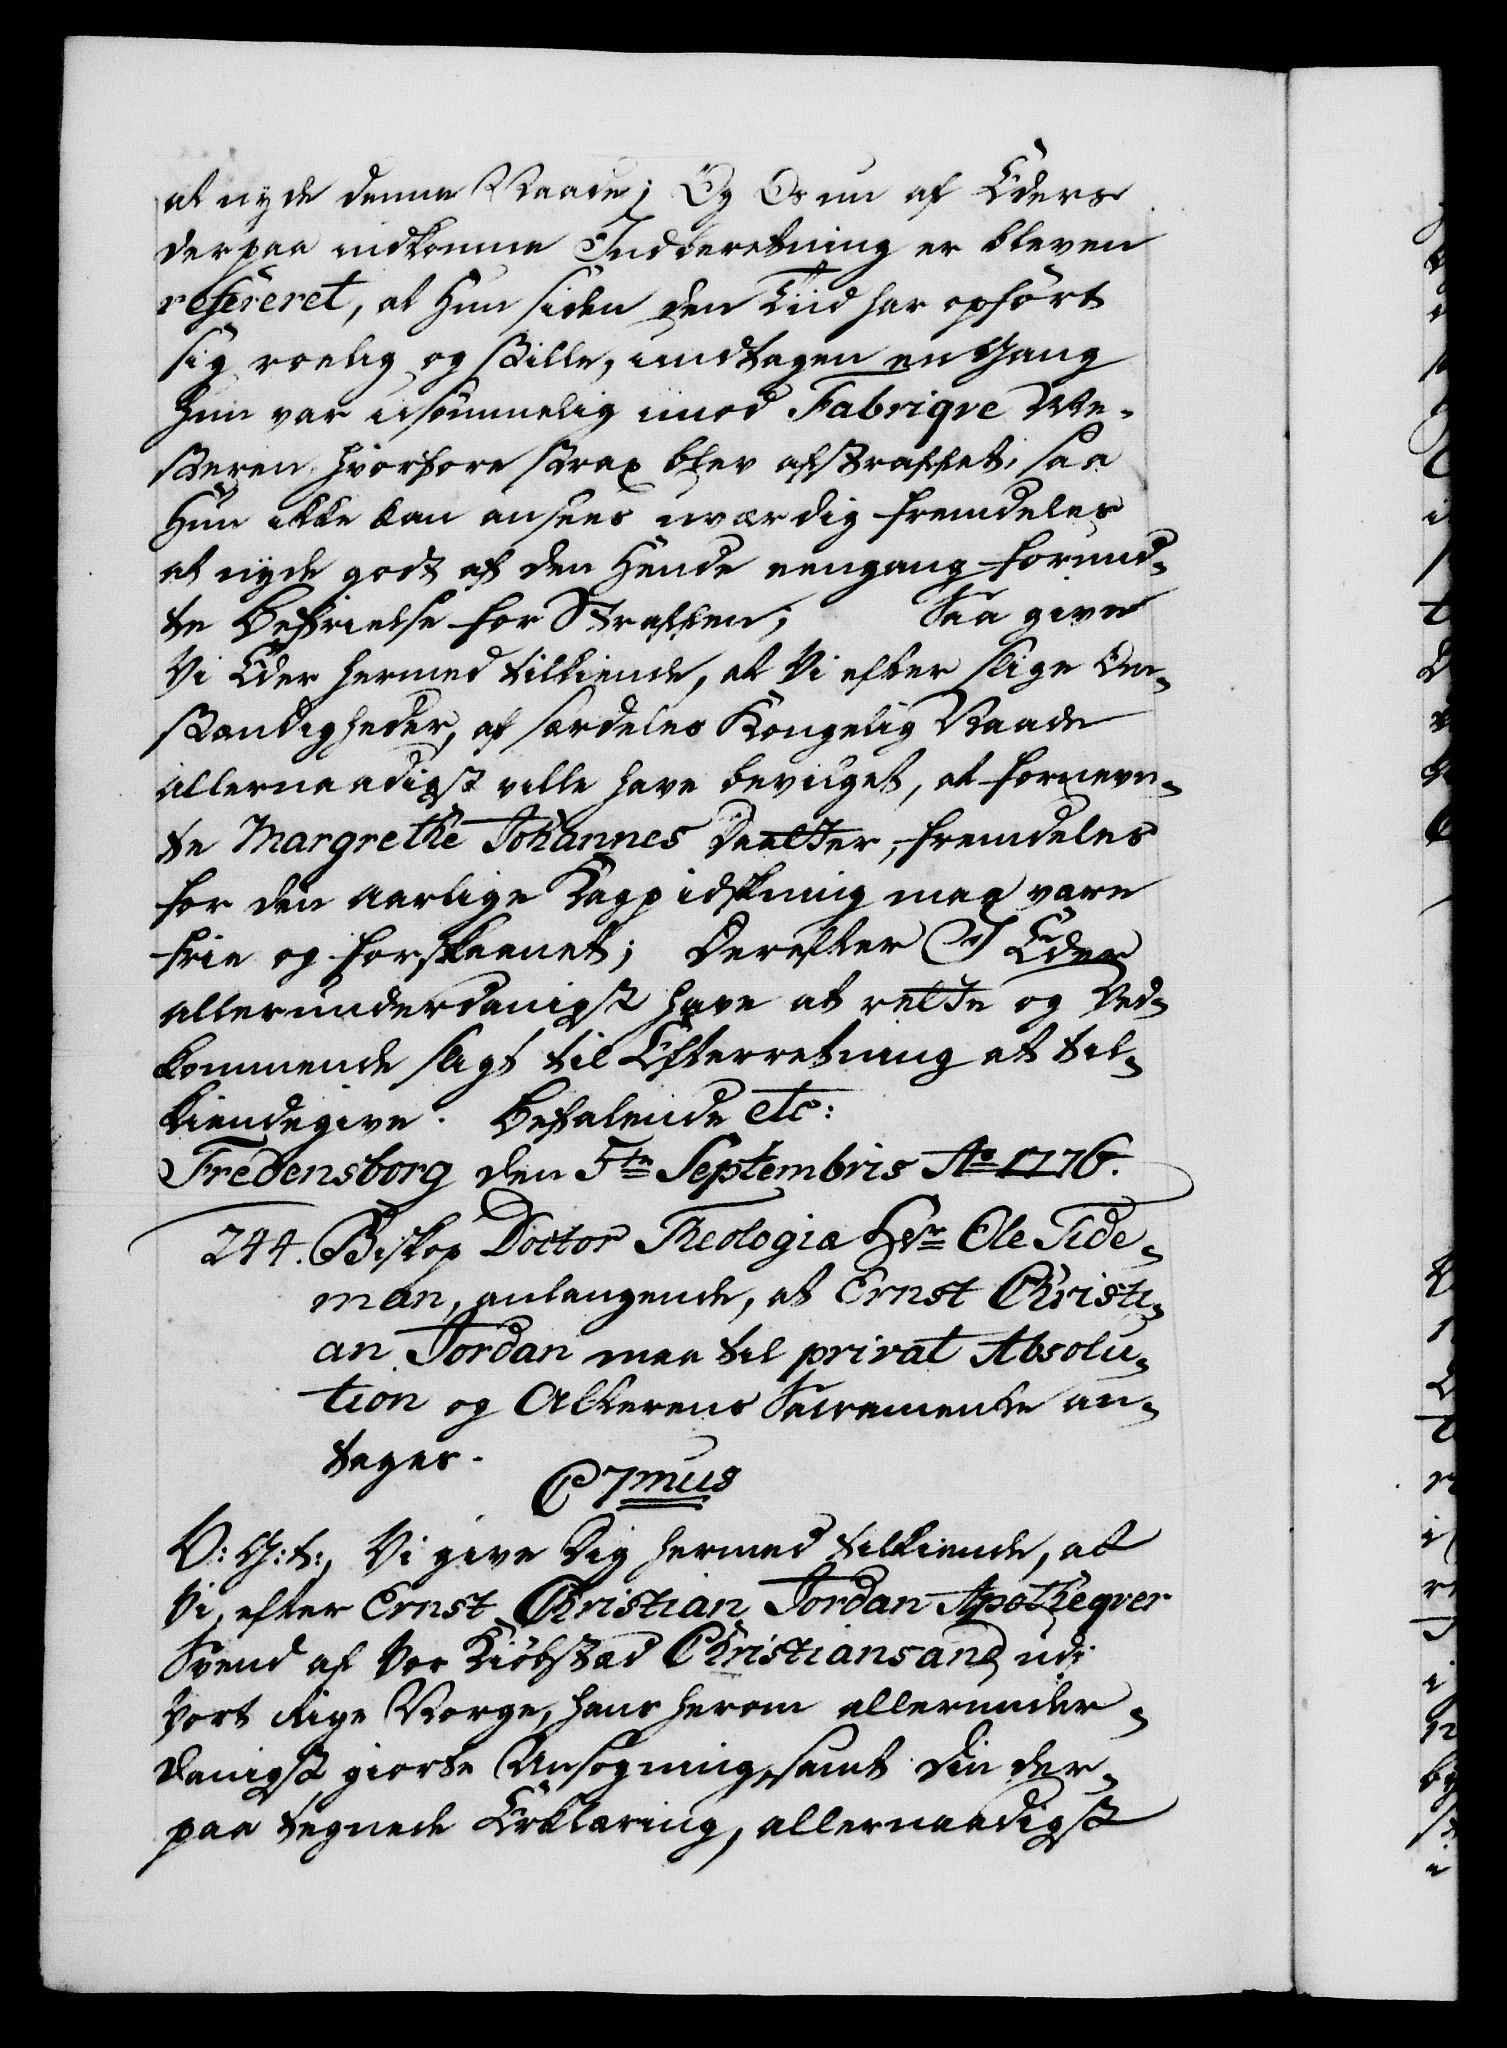 at nyde denne Naade; Og Os nu af Eders
derpaa indkomne Indberetning er bleven
refereret, at Hun siden den Tiid har opført
sig roelig og stille, undtagen en Gang
Hun var usømmelig imod Fabriqve Me-
steren, hvorfore strax blev afstraffet, saa
Hun ikke kan ansees uværdig fremdeles
at nyde godt af den Hende eengang forund-
te Befrielse for Straffen; Saa give
Vi Eder hermed tilkiende, at Vi efter slige Om-
stændigheder, af særdeles Kongelig Naade
allernaadigst ville have bevilget, at fornevn-
te Margrethe Johannes Daatter, fremdeles
for den aarlige Kagpidskning maa være
frie og forskaanet; Derefter I Eder
allerunderdanigst have at rette og Ved-
kommende sligt til Efterretning at til-
kiendegive. Befalende etc:
Fredensborg den 5te Septembris Ao 1776.
244. Biskop Doctor Theologiæ Hr. Ole Tide-
man, anlangende, at Ernst Christi-
an Jordan maa til privat Absolu-
tion og Alterens Sacramente an-
tages.
C 7mus
V: G: t:, Vi give Dig hermed tilkiende, at
Vi, efter Ernst Christian Jordan Apotheqver
Svend af Vor Kiøbstæd Christiansand, udi
Vort Rige Norge, hans herom allerunder-
danigst giorte Ansøgning, samt Din der-
paa tegnede Erklæring, allernaadigst